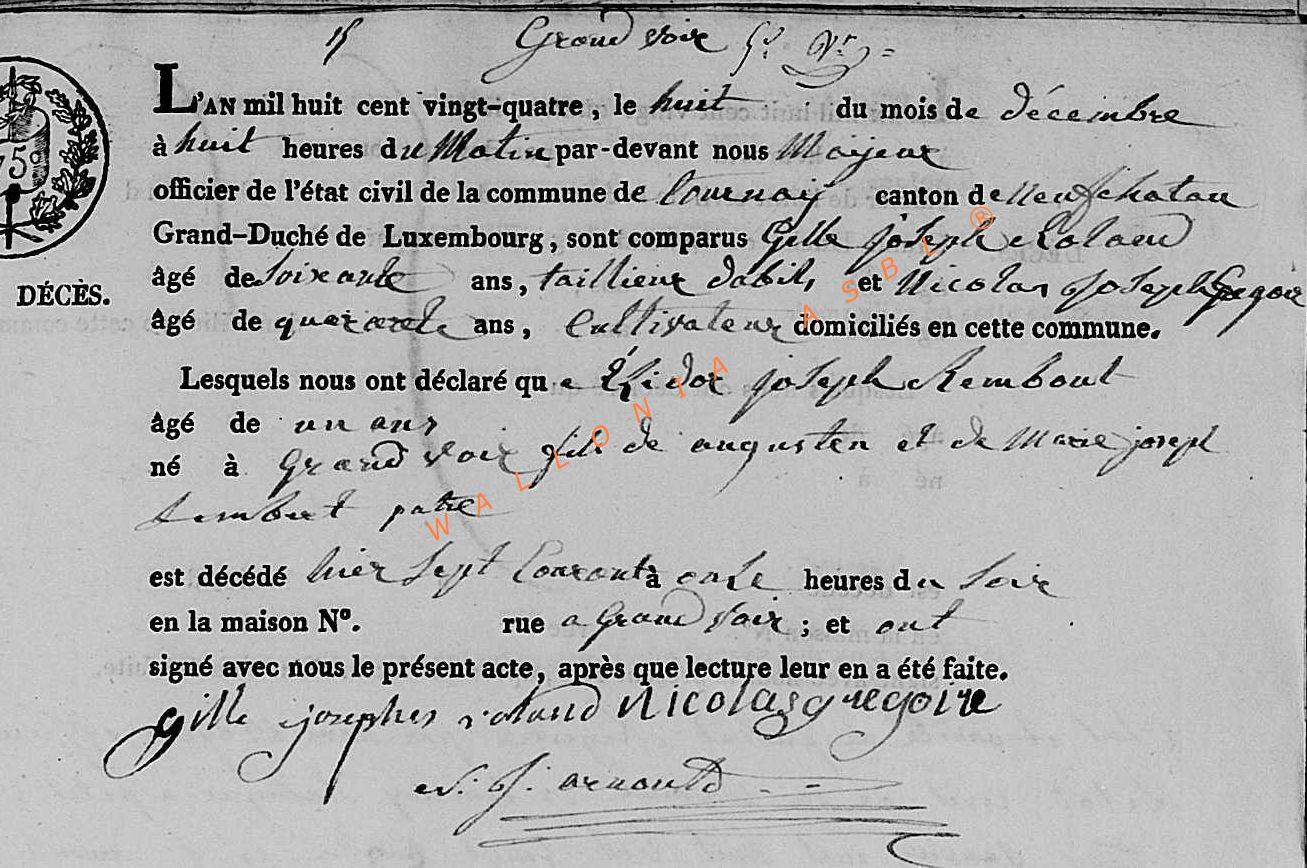 15 Grand voir
L'AN mil huit cent vingt-quatre, le huit du mois de décembre
à huit heures du Matin par-devant nous Mayeur
officier de l'état civil de la commune de tournay canton de Neufchatau
Grand-Duché de Luxembourg, sont comparus Gille joseph Roland
75c
DÉCÈS.
âgé de soixante ans, taillieur dabits et Nicolas joseph Gregoir
âgé de quarante ans, Cultivateur domiciliés en cette commune.
Lesquels nous ont déclaré que joseph Rembout
âgé de un ans
né à grand voir fils de augusten et de Marie joseph
patre
est décédé hier sept Courant à onse heures du soir
en la maison N°. rue a grand voir ; et ont
signé avec nous le présent acte, après que lecture leur en a été faite.
gille josephes roland Nicolas gregoire
j. arnould
WALLONIA ASBL ®